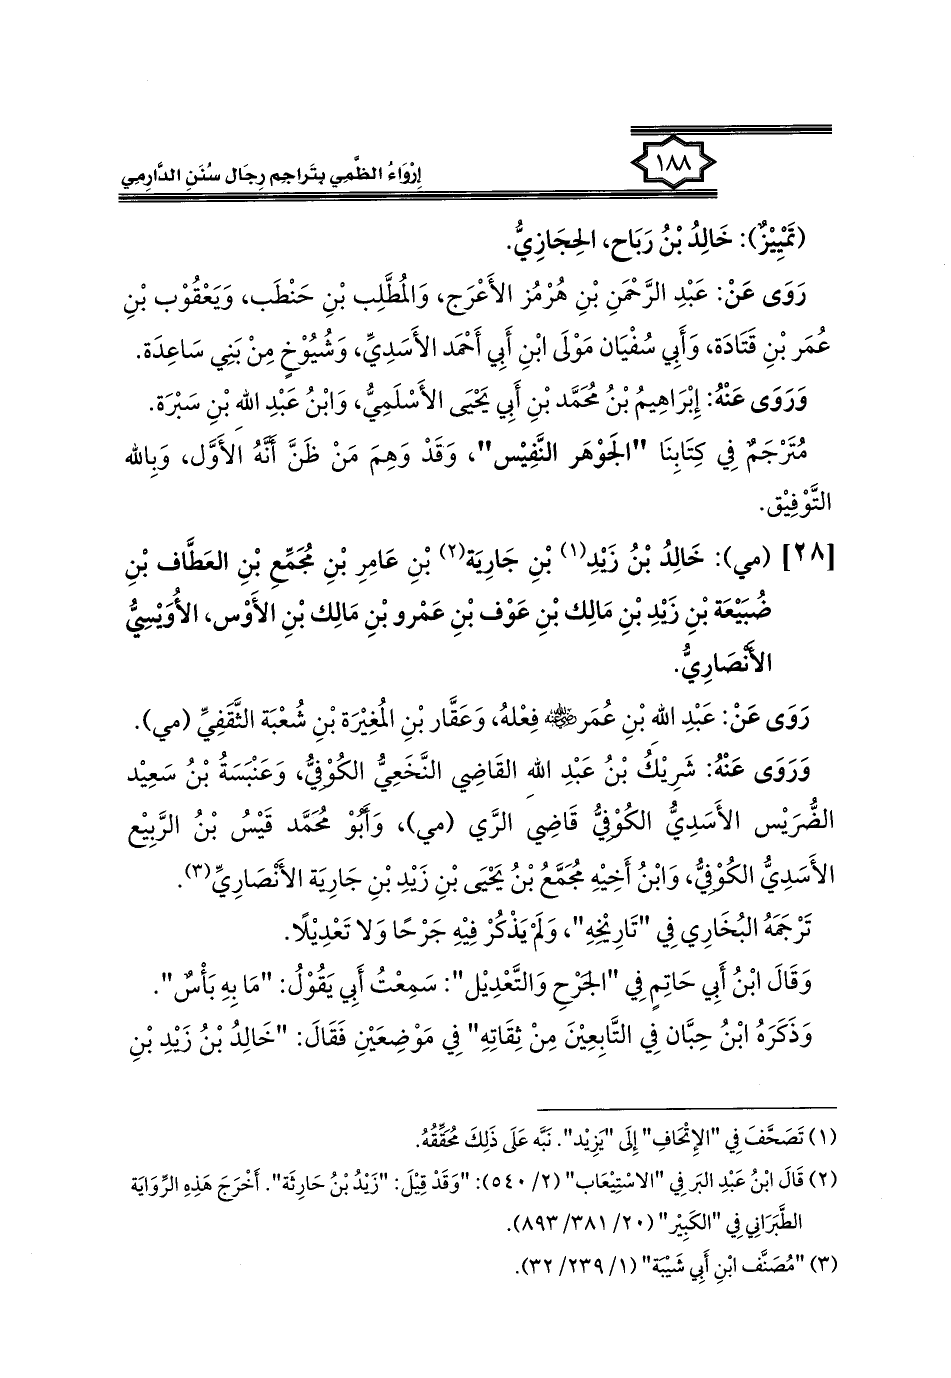 ١٨٨
إِرْوَاءُ الظَّمِي بِتَرَاجِم رِجَال سُنَنِ الدَّارِمِي
(تَمْيِيْزٌ): خَالِدُ بْنُ رَبَاح، الحِجَازِيُّ.
رَوَى عَنْ: عَبْدِ الرَّحْمَنِ بْنِ هُرْمُز الأَعْرَج، وَالمُطَّلِب بْنِ حَنْطَب، وَيَعْقُوْب بْنِ
عُمَر بْنِ قَتَادَة، وَأَبِي سُفْيَان مَوْلَى ابْنِ أَبِي أَحْمَد الأَسَدِيِّ، وَشُيُوْخٍ مِنْ بَنِي سَاعِدَة.
وَرَوَى عَنْهُ: إِبْرَاهِيمُ بْنُ مُحَمَّد بْنِ أَبِي يَحْيَى الأَسْلَمِيُّ، وَابْنُ عَبْدِ الله بْنِ سَبْرَة.
مُتَرْجَمٌ فِي كِتَابِنَا "الجَوْهَر النَّفِيْس"، وَقَدْ وَهِمَ مَنْ ظَنَّ أَنَّهُ الأَوَّل، وَبِالله
التَّوْفِيْق.
[٢٨] (مي): خَالِدُ بْنُ زَيْدِ(١) بْنِ جَارِيَة(٢) بْنِ عَامِرِ بْنِ مُجَمِّعِ بْنِ العَطَّاف بْنِ
ضُبَيْعَة بْنِ زَيْدِ بْنِ مَالِك بْنِ عَوْف بْنِ عَمْرو بْنِ مَالِك بْنِ الأَوْس، الأُوَيْسِيُّ
الأَنْصَارِيُّ.
رَوَى عَنْ: عَبْدِ الله بْنِ عُمَر ﵁ فِعْلهُ، وَعَقَّار بْنِ المُغِيْرَة بْنِ شُعْبَة الثَّقَفِيِّ (مي).
وَرَوَى عَنْهُ: شَرِيْكُ بْنُ عَبْدِ الله القَاضِي النَّخَعِيُّ الكُوْفِيُّ، وَعَنْبَسَةُ بْنُ سَعِيْد
الضُّرَيْس الأَسَدِيُّ الكُوْفِيُّ قَاضِي الرَّي (مي)، وَأَبُوْ مُحَمَّد قَيْسُ بْنُ الرَّبِيْع
الأَسَدِيُّ الكُوْفِيُّ، وَابْنُ أَخِيْهِ مُجَمَّعُ بْنُ يَحْيَى بْنِ زَيْدِ بْنِ جَارِيَة الأَنْصَارِيِّ(٣).
تَرْجَمَهُ البُخَارِي فِي "تَارِيْخِهِ"، وَلَمْ يَذْكُرْ فِيْهِ جَرْحًا وَلا تَعْدِيْلًا.
وَقَالَ ابْنُ أَبِي حَاتِمٍ فِي "الجَرْحِ وَالتَّعْدِيْل": سَمِعْتُ أَبِي يَقُوْلُ: "مَا بِهِ بَأْسٌ".
وَذَكَرَهُ ابْنُ حِبَّان فِي التَّابِعِيْنَ مِنْ ثِقَاتِهِ" فِي مَوْضِعَيْنِ فَقَالَ: "خَالِدُ بْنُ زَيْد بْنِ
(١) تَصَحَّفَ فِي "الإِتْحَافِ" إِلَى "يَزِيْد". نَبَّه عَلَى ذَلِكَ مُحَقِّقُهُ.
(٢) قَالَ ابْنُ عَبْدِ البَر فِي "الاسْتِيْعَاب" (٢/ ٥٤٠): "وَقَدْ قِيْلَ: "زَيْدُ بْنُ حَارِثَة". أَخْرَجَ هَذِهِ الرِّوَايَة
الطَّبَرَانِي فِي "الكَبِيْر" (٢٠/ ٣٨١/ ٨٩٣).
(٣) "مُصَنَّف ابْنِ أَبِي شَيْبَة" (١/ ٢٣٩/ ٣٢).